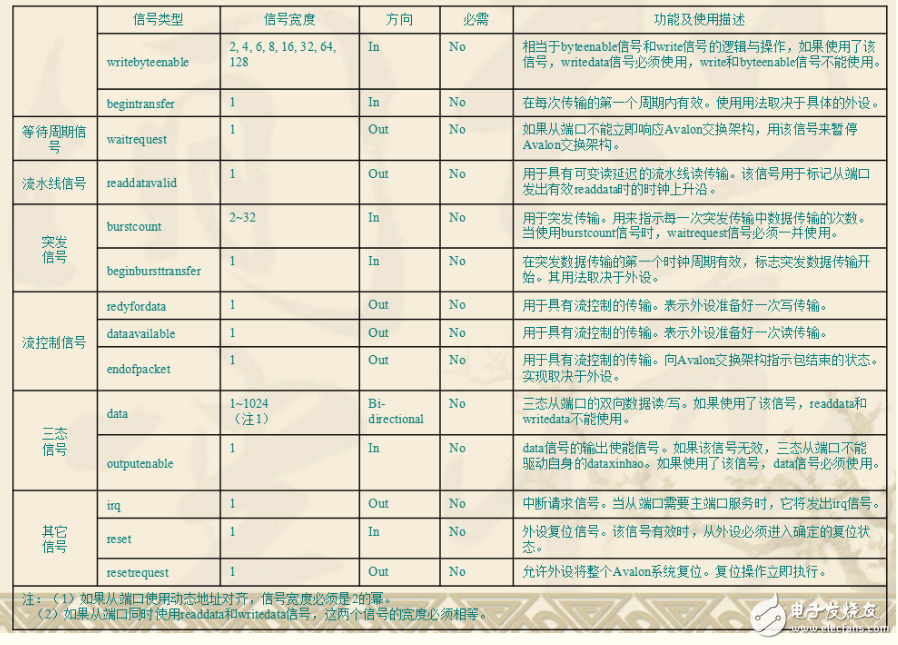 信号类型 信号宽度 方向 必需 功能及使用描述
writebyteenable 2, 4, 6, 8, 16, 32, 64, In No 相当于byteenable信号和write信号的逻辑与操作，如果使用了该
128 信号，writedata信号必须使用，write和byteenable信号不能使用。
begintransfer 1 In No 在每次传输的第一个周期内有效。使用用法取决于具体的外设。
等待周期信 waitrequest 1 Out No 如果从端口不能立即响应Avalon交换架构，用该信号来暂停
号 Avalon交换架构。
流水线信号 readdatavalid 1 Out No 用于具有可变读延迟的流水线读传输。该信号用于标记从端口
发出有效readdata时的时钟上升沿。
突发 burstcount 2~32 In No 用于突发传输。用来指示每一次突发传输中数据传输的次数。
信号 当使用burstcount信号时，waitrequest信号必须一并使用。
beginbursttransfer 1 In No 在突发数据传输的第一个时钟周期有效，标志突发数据传输开
始。其用法取决于外设。
流控制信号 redyfordata 1 Out No 用于具有流控制的传输。表示外设准备好一次写传输。
dataavailable 1 Out No 用于具有流控制的传输。表示外设准备好一次读传输。
endofpacket 1 Out No 用于具有流控制的传输。向Avalon交换架构指示包结束的状态。
实现取决于外设。
三态 data 1~1024 Bi- No 三态从端口的双向数据读/写。如果使用了该信号，readdata和
信号 （注1） directional writedata不能使用。
outputenable 1 In No data信号的输出使能信号。如果该信号无效，三态从端口不能
驱动自身的dataxinhao。如果使用了该信号，data信号必须使用。
其它 irq 1 Out No 中断请求信号。当从端口需要主端口服务时，它将发出irq信号。
信号 reset 1 In No 外设复位信号。该信号有效时，从外设必须进入确定的复位状
态。
resetrequest 1 Out No 允许外设将整个Avalon系统复位。复位操作立即执行。
注：（1）如果从端口使用动态地址对齐，信号宽度必须是2的幂。
（2）如果从端口同时使用readdata和writedata信号，这两个信号的宽度必须相等。
电子发烧友
www.elecfans.com